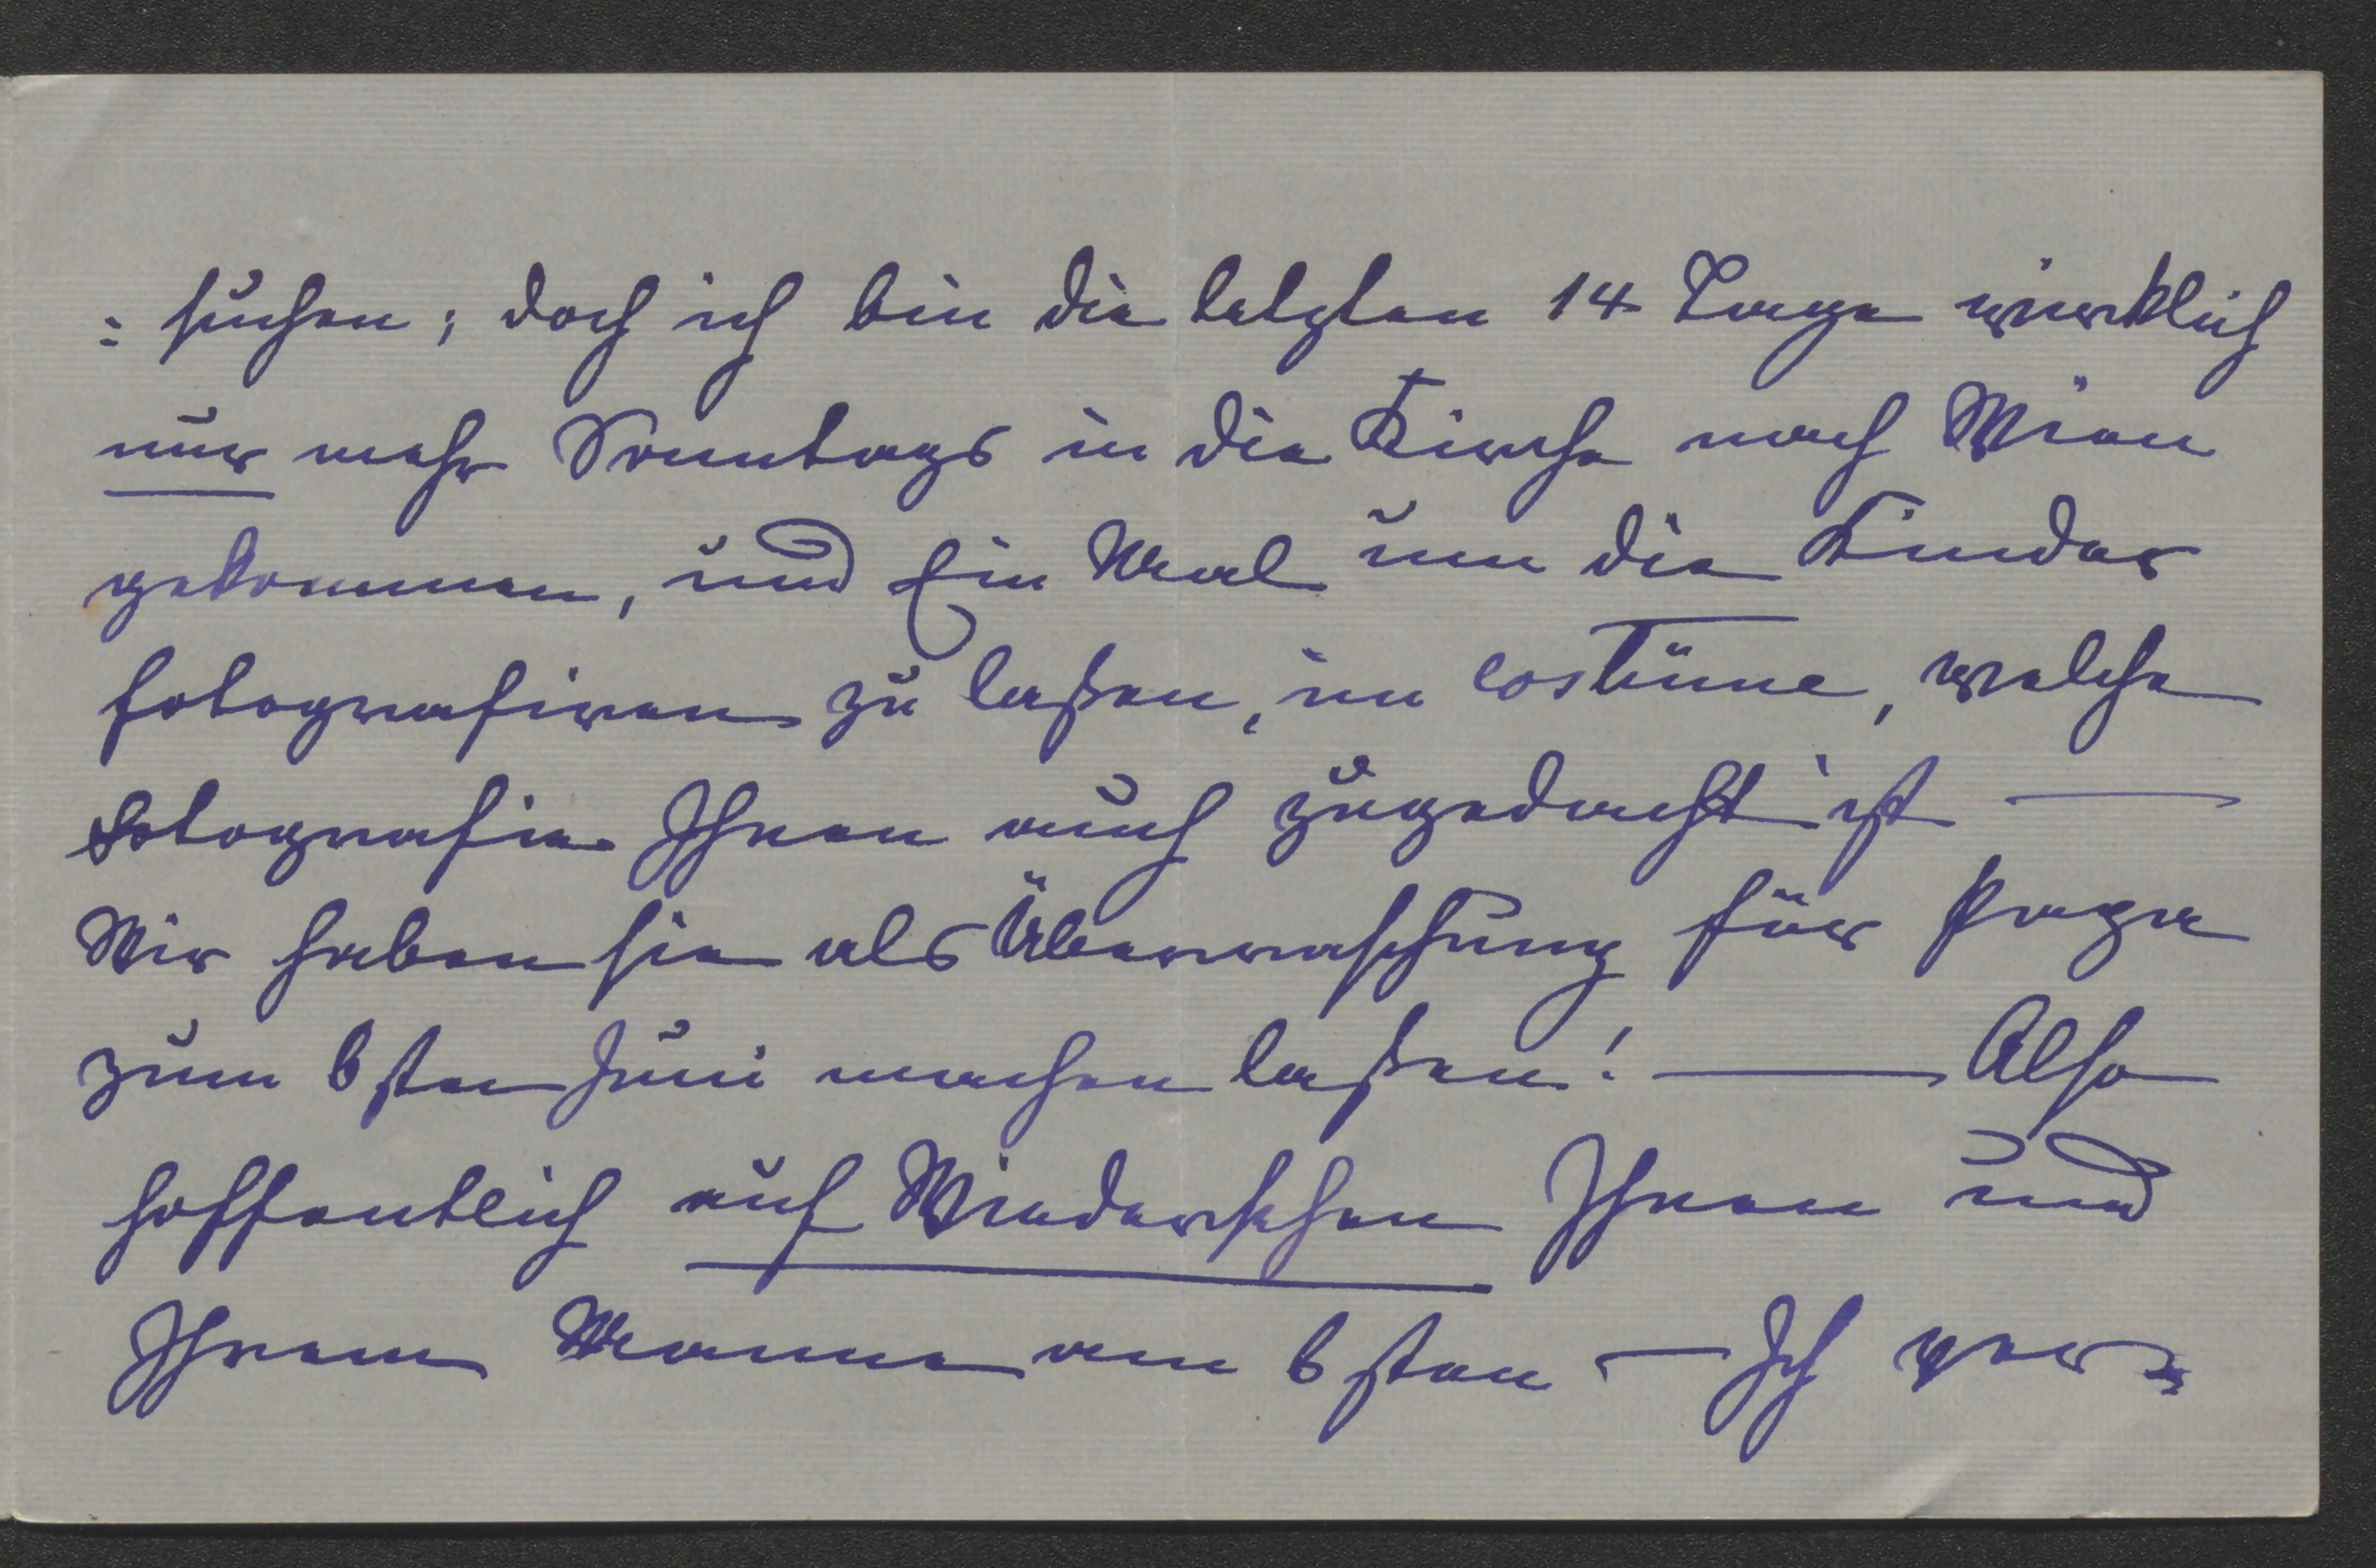 : suchen; doch ich bin die letzten 14 Tage wirklich
nur mehr Sonntags in die Kirche nach Wien
gekommen, und Ein Mal um die Kinder
fotografiren zu laßen, im costüme, welche
Fotografie Ihnen auch zugedacht ist —
Wir haben sie als Überraschung für Papa
zum 6sten Juni machen laßen! — Also
hoffentlich auf Wiedersehen Ihnen und
Ihrem Manne am 6sten — Ich ver=